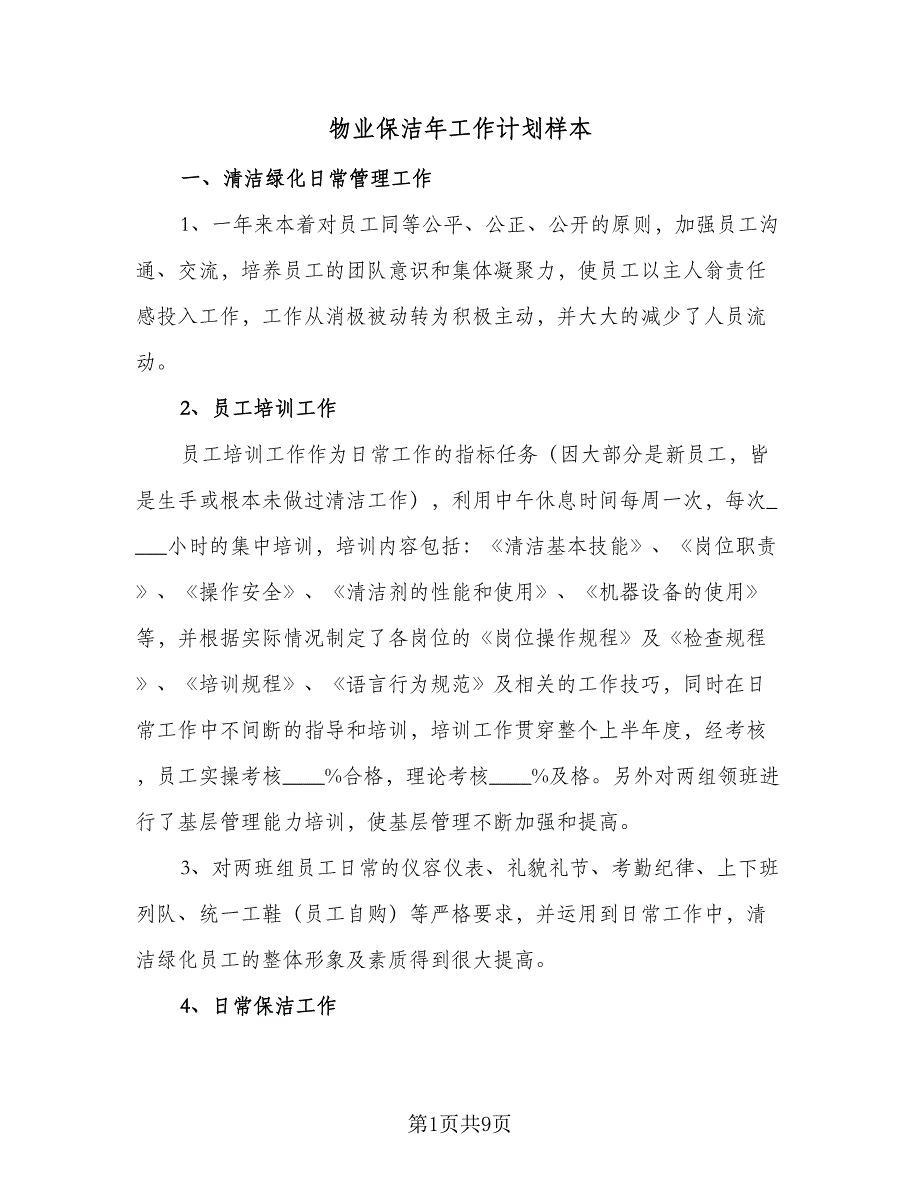 物业保洁年工作计划样本
一、清洁绿化日常管理工作
1、一年来本着对员工同等公平、公正、公开的原则，加强员工沟
通、交流，培养员工的团队意识和集体凝聚力，使员工以主人翁责任
感投入工作，工作从消极被动转为积极主动，并大大的减少了人员流
动。
2、员工培训工作
员工培训工作作为日常工作的指标任务（因大部分是新员工，皆
是生手或根本未做过清洁工作），利用中午休息时间每周一次，每次_
___小时的集中培训，培训内容包括：《清洁基本技能》、《岗位职责
》、《操作安全》、《清洁剂的性能和使用》、《机器设备的使用》
等，并根据实际情况制定了各岗位的《岗位操作规程》及《检查规程
》、《培训规程》、《语言行为规范》及相关的工作技巧，同时在日
常工作中不间断的指导和培训，培训工作贯穿整个上半年度，经考核
，员工实操考核____%合格，理论考核____%及格。另外对两组领班进
行了基层管理能力培训，使基层管理不断加强和提高。
3、对两班组员工日常的仪容仪表、礼貌礼节、考勤纪律、上下班
列队、统一工鞋（员工自购）等严格要求，并运用到日常工作中，清
洁绿化员工的整体形象及素质得到很大提高。
4、日常保洁工作
第1页共9页